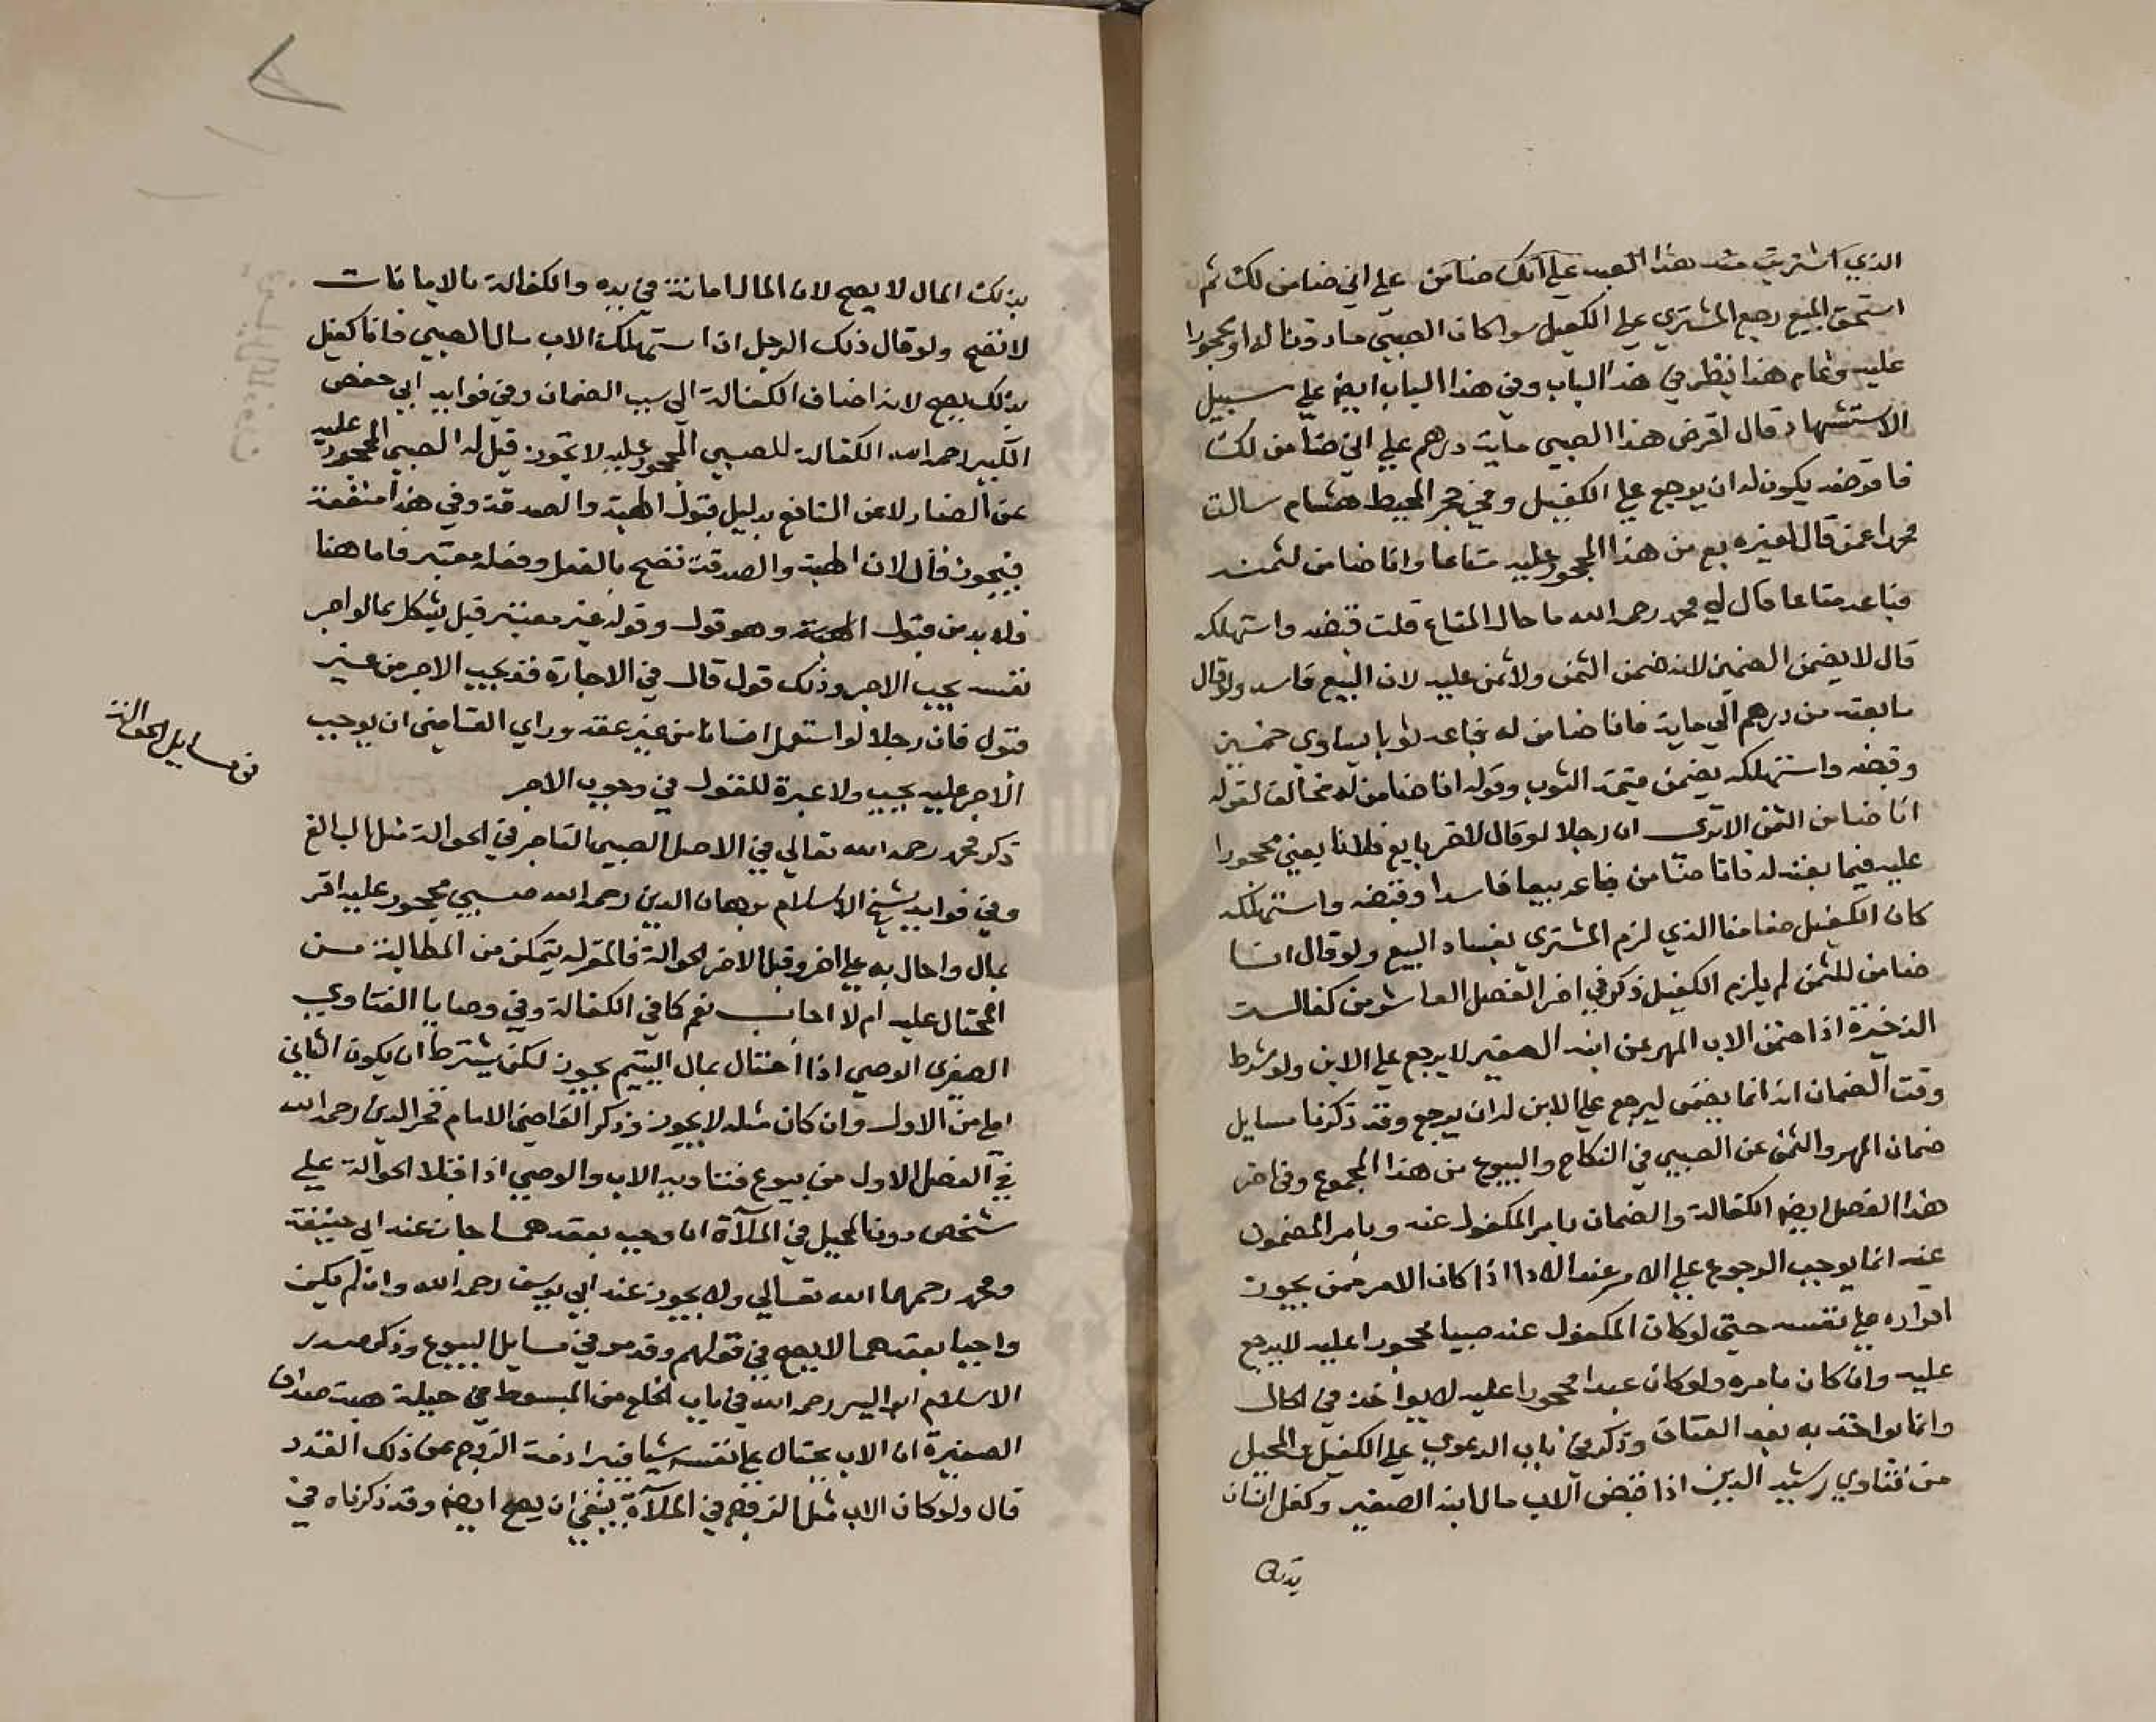 الذي اشتريت منه هذا العبد علي انك ضامن علي اني ضامن لك ثم
استحق المبيع رجع المشتري علي الكفيل سوا كان الصبي ماذونا له او محجورا
عليه وتمام هذا ينظر في هذا الباب وفي هذا الباب ايضا علي سبيل
الاستشهاد قال اقرض هذا الصبي ماية درهم علي اني ضامن لك
فاقرضه يكون له ان يرجع علي الكفيل وفي حجر المحيط هشام سالت
محمدا عمن قال لغيره بع من هذا المحجور عليه متاعا وانا ضامن لثمنه
فباعه متاعا قال لي محمد رحمه الله ما حال المتاع قلت قبضه واستهلكه
قال لا يضمن الضمين لانه ضمن الثمن ولا ثمن عليه لان البيع فاسد ولو قال
ما بعته من درهم الي ماية فانا ضامن له فباعه ثوبا يساوي خمسين
وقبضه واستهلكه يضمن قيمة الثوب وقوله انا ضامن له مخالف لقوله
انا ضامن الثمن الا تري ان رجلا لو قال لاخر بايع فلانا يعني محجورا
عليه فيما بعته له فانا ضامن فباعه بيعا فاسدا وقبضه واستهلكه
كان الكفيل ضامنا الذي لزم المشتري بفساد البيع ولو قال انا
ضامن للثمن لم يلزم الكفيل ذكر في اخر الفصل العاشر من كفالت
الذخيرة اذا ضمن الاب المهر عن ابنه الصغير لا يرجع علي الابن ولو شرط
وقت الضمان انه انما يضمن ليرجع علي الابن له ان يرجع وقد ذكرنا مسايل
ضمان المهر والثمن عن الصبي في النكاح والبيوع من هذا المجموع وفي اخر
هذا الفصل ايضا الكفالة والضمان بامر المكفول عنه وبامر المضمون
عنه انما يوجب الرجوع علي الامر عند الادا اذا كان الامر ممن يجوز
اقراره علي نفسه حتي لو كان المكفول عنه صبيا محجورا عليه لا يرجع
عليه وان كان بامره ولو كان عبدا محجورا عليه لا يواخذ في الحال
وانما يواخذ به بعد العتاق وذكر في باب الدعوي علي الكفيل والمحيل
من فتاوي رشيد الدين اذا قبض الاب مال ابنه الصغير وكفل انسان
بذلك
بذلك المال لا يصح لان المال امانة في يده والكفالة بالامانات
لا تصح ولو قال ذلك الرجل ان استهلك الاب مال الصبي فانا كفيل
بذلك يصح لانه اضاف الكفالة الي سبب الضمان وفي فوايد ابي حفص
الكبير رحمه الله الكفالة للصبي المحجور عليه لا تجوز قيل له الصبي المحجور عليه
عن الضار لا عن النافع بدليل قبول الهبة والصدقة وفي هذا منفعة
فيجوز قال لان الهبة والصدقة تصح بالفعل وفعله معتبر فاما هنا
فلا بد من قبول الهبة وهو قول وقوله غير معتبر قيل يشكل بما لو اجر
نفسه يجب الاجر وذلك قول قال في الاجارة فقد يجب الاجر من غير
قبول فان رجلا لو استعمل انسانا من غير عقد وراي القاضي ان يوجب
الاجر عليه يجب ولا عبرة للقول في وجوب الاجر
في مسايل الحوالة
ذكر محمد رحمه الله تعالي في الاصل الصبي التاجر في الحوالة مثل البالغ
وفي فوايد شيخ الاسلام برهان الدين رحمه الله صبي محجور عليه اقر
بمال واحال به علي اخر وقبل الاخر الحوالة فالمقر له يتمكن من المطالبة من
المحتال عليه ام لا اجاب نعم كما في الكفالة وفي وصايا الفتاوي
الصغري الوصي اذا احتال بمال اليتيم يجوز لكن يشترط ان يكون الثاني
املي من الاول وان كان مثله لا يجوز وذكر القاضي الامام فخر الدين رحمه الله
في الفصل الاول من بيوع فتاويه الاب والوصي اذا قبلا الحوالة علي
شخص دون المحيل في الملآة ان وجب بعقدهما جاز عند ابي حنيفة
ومحمد رحمهما الله تعالي ولا يجوز عند ابي يوسف رحمه الله وان لم يكن
واجبا بعقدهما لا يصح في قولهم وقد مر في مسايل البيوع وذكر صدر
الاسلام ابو اليسر رحمه الله في باب الخلع من المبسوط في حيلة هبة صداق
الصغيرة ان الاب يحتال علي نفسه شيا فيبرا ذمة الزوج عن ذلك القدر
قال ولو كان الاب مثل الزوج في الملآة ينبغي ان يصح ايضا وقد ذكرناه في